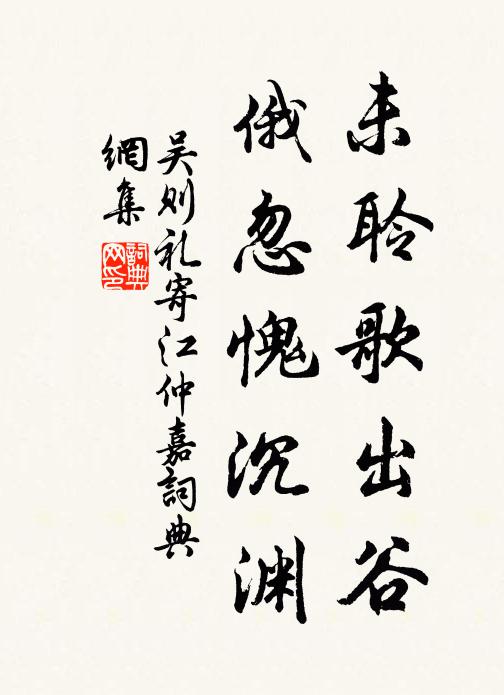 未聆歌出谷
俄忽愧沉渊
吴则礼寄江仲嘉詞典
網集
詞典网印